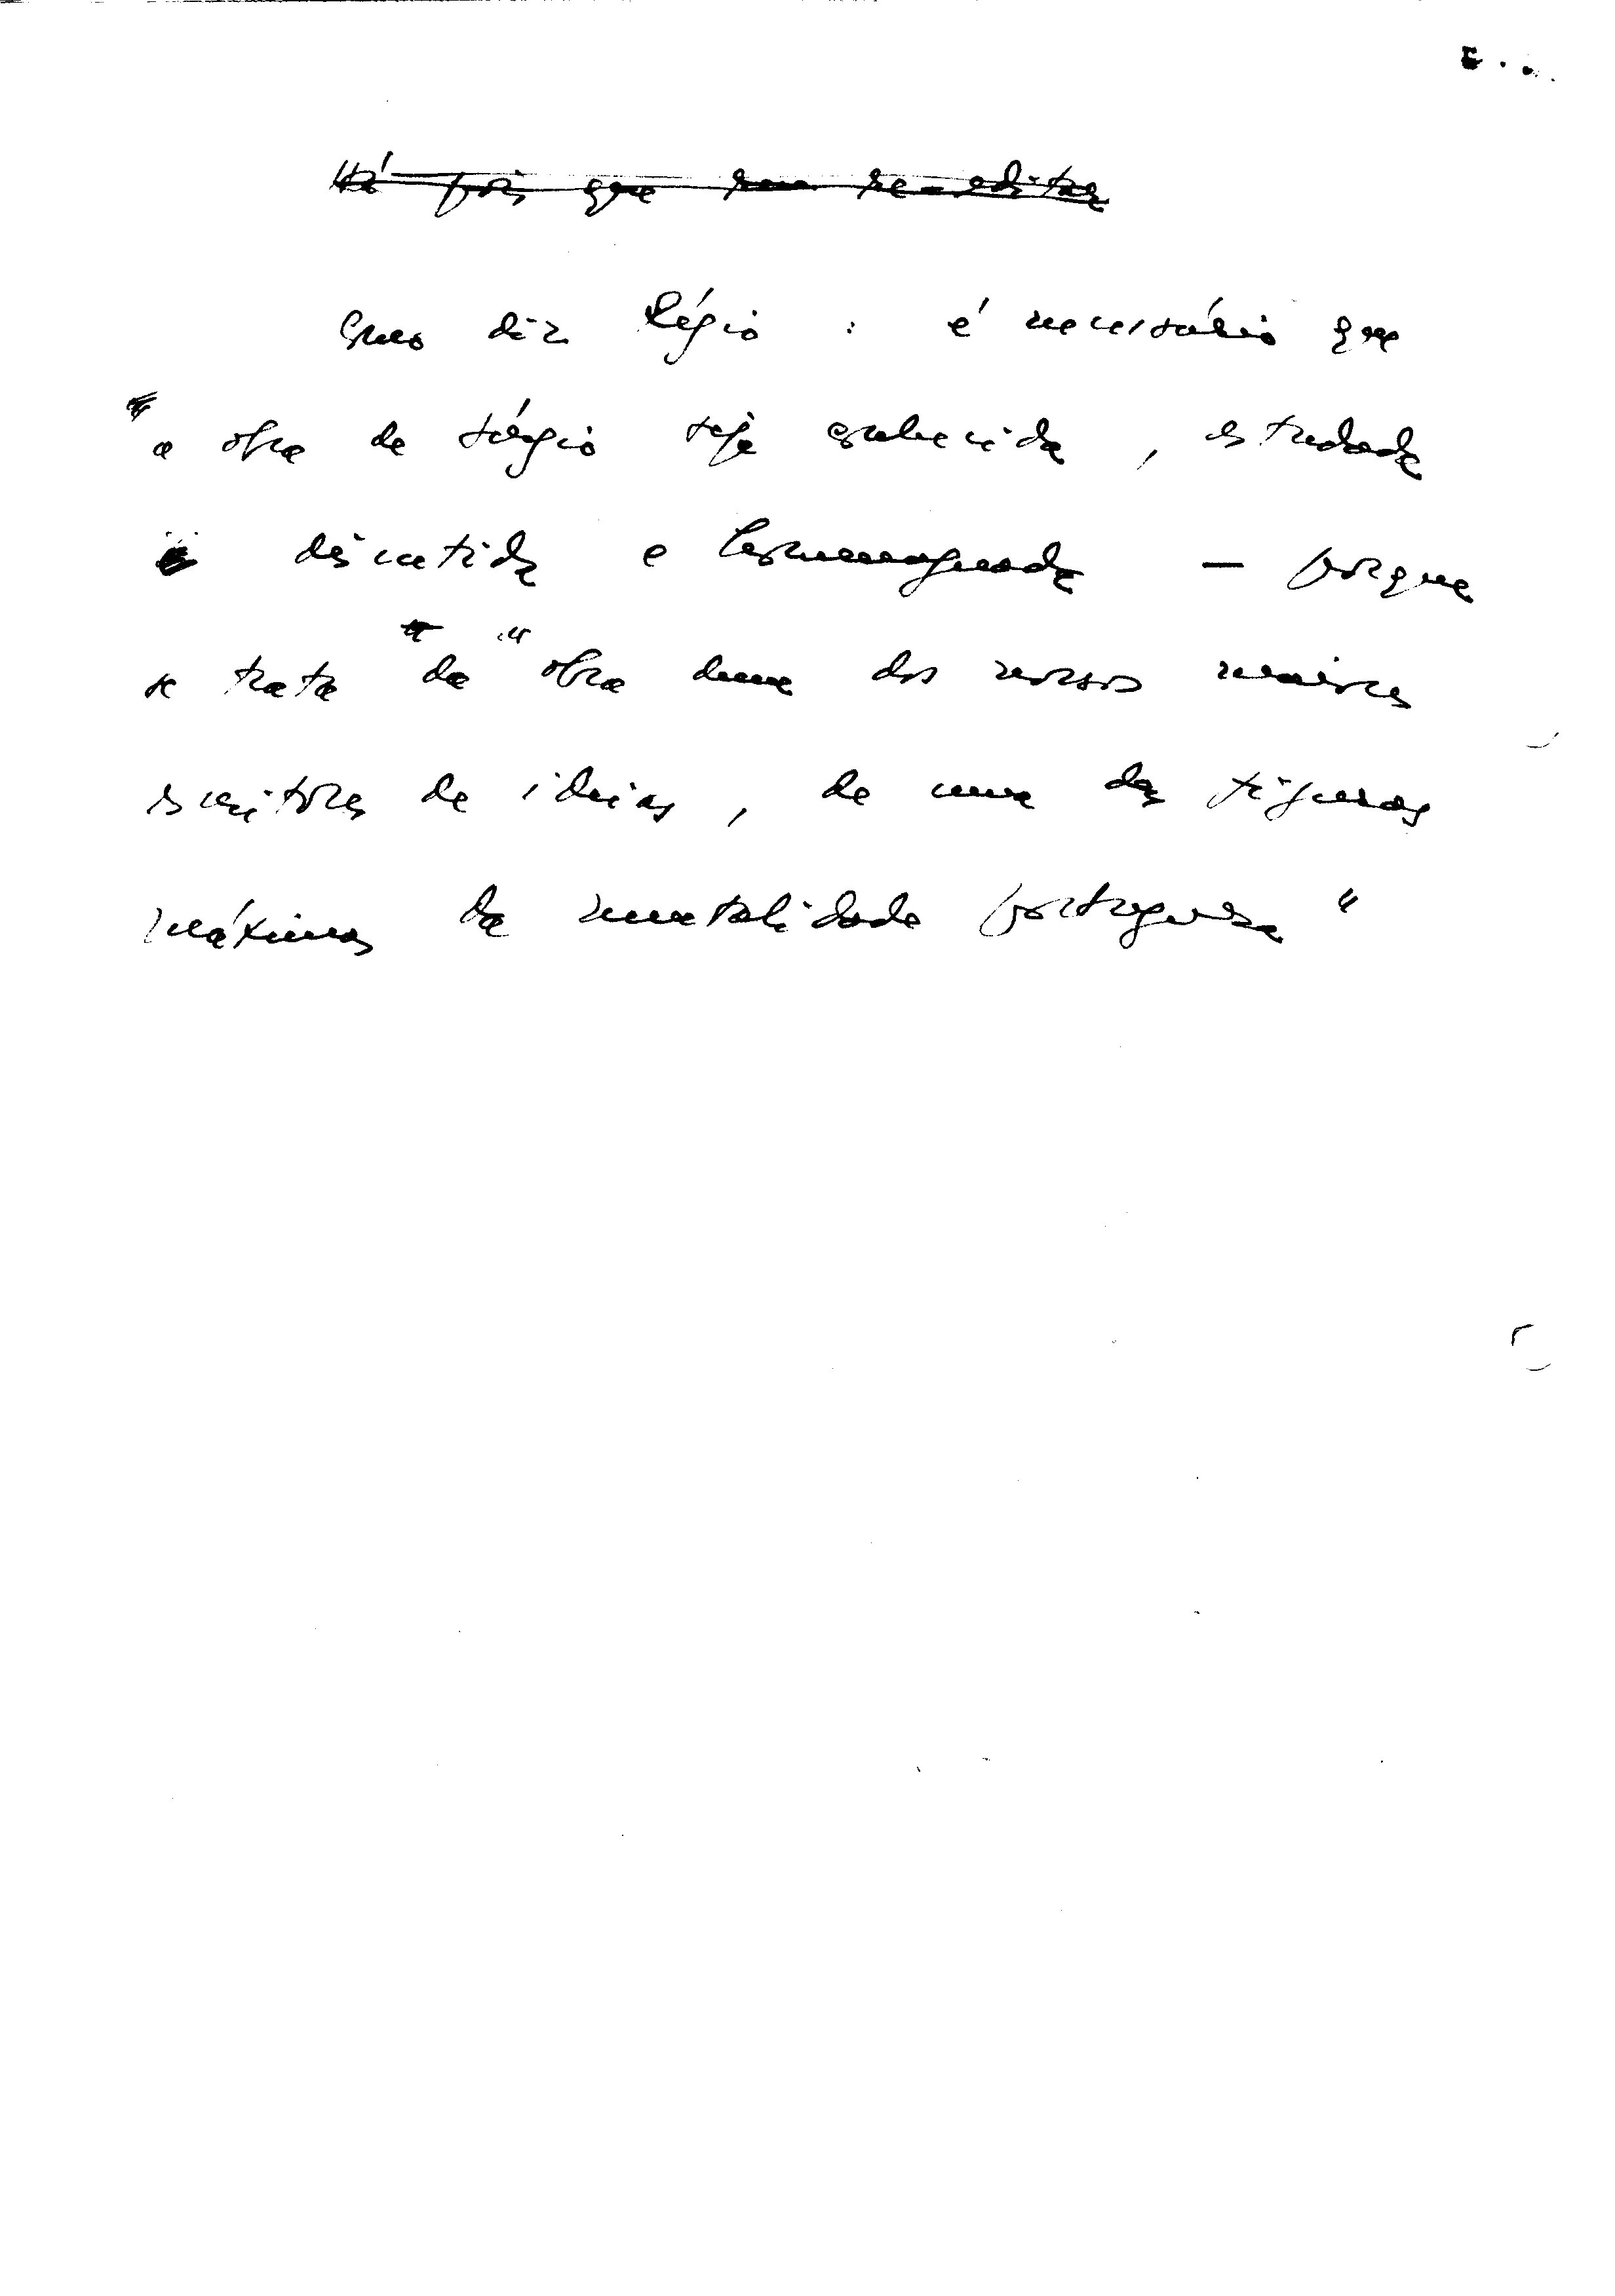 Há pois que re-editar
Como diz Régio : é necessário que
"a obra de Sérgio seja conhecida, estudada
discutida e – porque
se trata da "obra dum dos nossos maiores
escritores de ideias, de uma das figuras
máximas da mentalidade portuguesa"